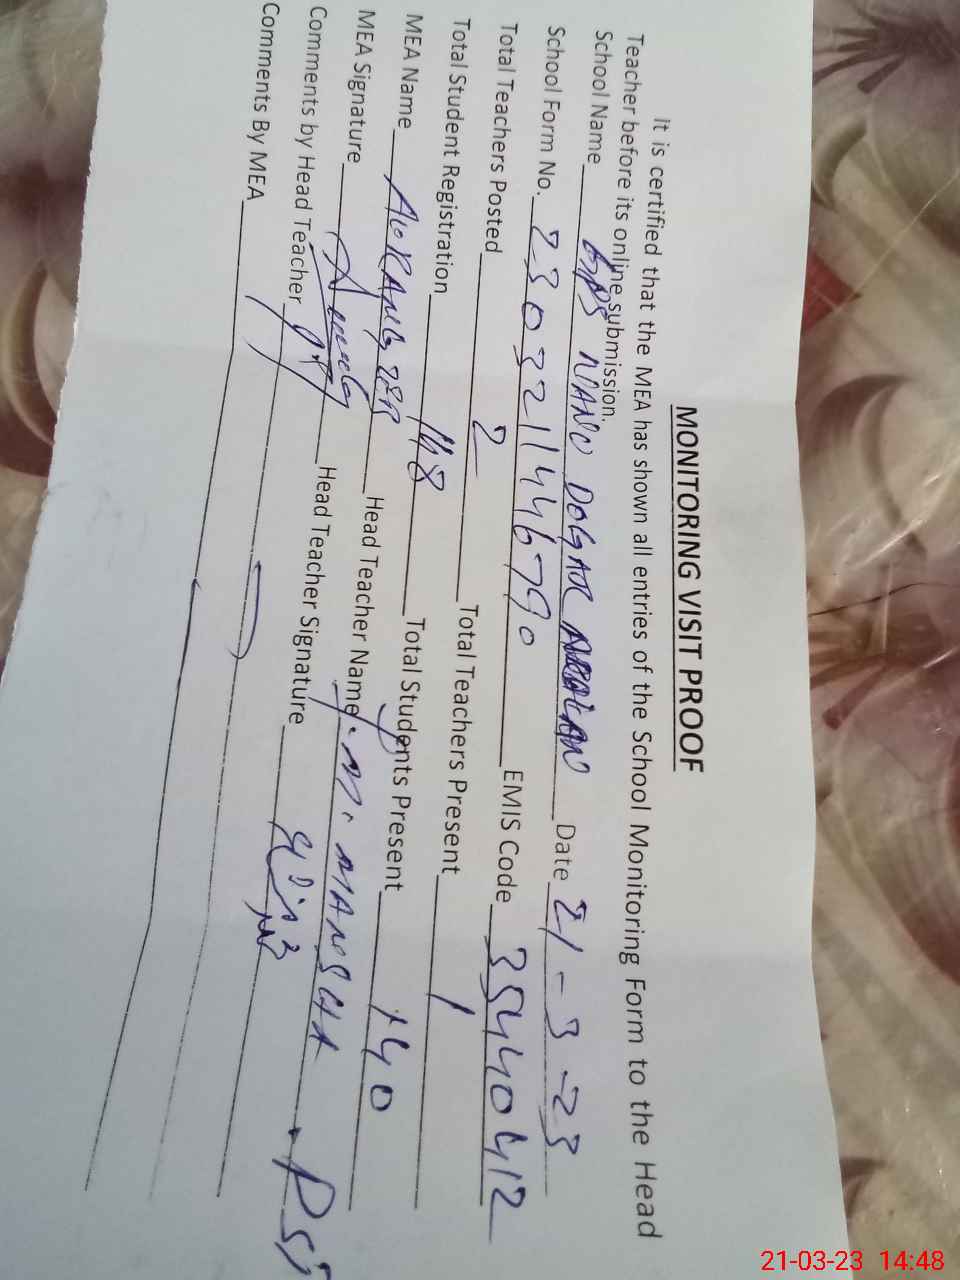 MONITORING VISIT PROOF
It is certified that the MEA has shown all entries of the School Monitoring Form to the Head
Teacher before its online submission.
School Name GPS NANO DOGAR Date 21-3-23
School Form No. 2303211446790 EMIS Code 35440412
Total Teachers Posted 2 Total Teachers Present 1
Total Student Registration 148 Total Students Present 140
MEA Name AURANGZEB Head Teacher Name M. MANSHA
MEA Signature Head Teacher Signature
Comments by Head Teacher
Comments By MEA
21-03-23 14:48